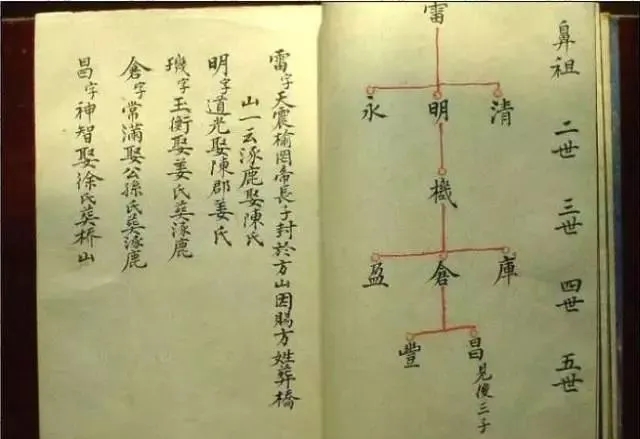 鼻祖
二世
三世
四世
五世
雷
清
明
永
機
庫
倉
盈
昌
豐
見後三子
雷字天震榆罔帝長子封於方山因賜方姓葬橋
山一云涿鹿娶陳氏
明字道光娶陳郡姜氏
璣字玉衡娶姜氏葬涿鹿
倉字常滿娶公孫氏葬涿鹿
昌字神智娶徐氏葬桥山